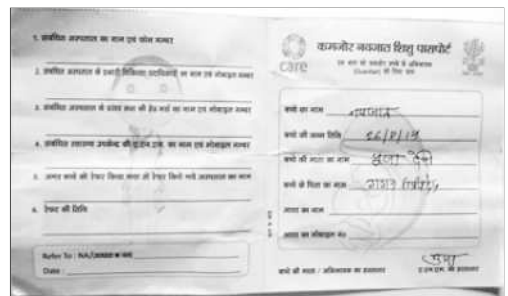 1. संबंधित अस्पताल का नाम एवं फोन नम्बर
2. संबंधित अस्पताल के प्रभारी चिकित्सा पदाधिकारी का नाम एवं मोबाइल नम्बर
3. संबंधित अस्पताल के प्रसव कक्ष की हेड नर्स का नाम एवं मोबाइल नम्बर
4. संबंधित स्वास्थ्य उपकेन्द्र की ए.एन.एम. का नाम एवं मोबाइल नम्बर
5. अगर बच्चे को रेफर किया गया तो रेफर किये गये अस्पताल का नाम
6. रेफर की तिथि
Refer To : NA/
Date :
care
कमजोर नवजात शिशु पासपोर्ट
(Guardian) के लिए
बच्चे का नाम नवजात
बच्चे की जन्म तिथि 26/8/19
बच्चे की माता का नाम पूजा देवी
बच्चे के पिता का नाम
आशा का नाम
आशा का मोबाइल नं०
बच्चे की माता / अभिभावक का हस्ताक्षर
ए.एन.एम. का हस्ताक्षर